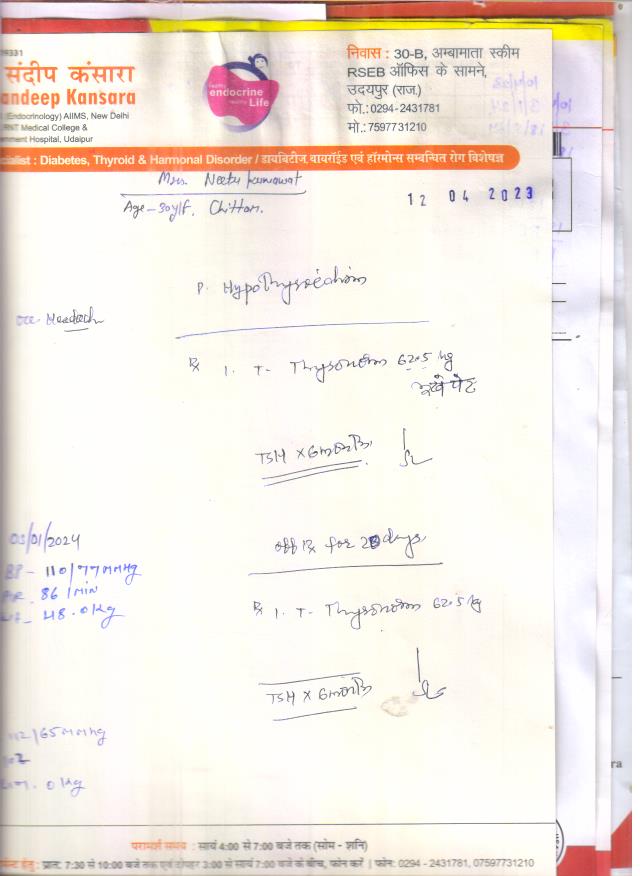 संदीप कंसारा
andeep Kansara
(Endocrinology) AIIMS, New Delhi
RNT Medical College &
ernment Hospital, Udaipur
endocrine
Life
निवास : 30-B, अम्बामाता स्कीम
RSEB ऑफिस के सामने,
उदयपुर (राज.)
फो.:0294-2431781
मो.:7597731210
cialist : Diabetes, Thyroid & Harmonal Disorder / डायबिटीज, थायरॉईड एवं हॉरमोन्स सम्बन्धित रोग विशेषज्ञ
Mrs. Neetu kumawat
Age - 30y/F. Chittor.
12 04 2023
P. Hypothyroidism
℞ 1. T- Thyronorm 62.5 µg
TSH x 6 months
03/01/2024
off Rx for 20 days
BP - 110/77 mmHg
PR. 86 /MIN
48.0 Kg
℞ 1. T- Thyronorm 62.5 µg
TSH x 6 months
112/65 mmHg
0 Kg
परामर्श समय : सायं 4:00 से 7:00 बजे तक (सोम - शनि)
हेतु : प्रात: 7:30 से 10:00 बजे तक एवं दोपहर 3:00 से सायं 7:00 बजे के बीच, फोन करें | फोन: 0294 - 2431781, 07597731210